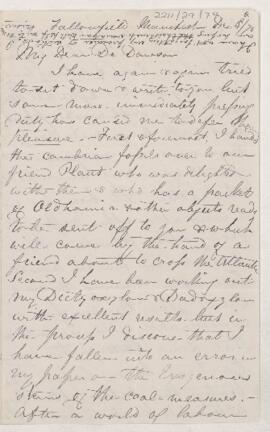 2211/27/78
Fallowfield Manchester Dec
My Dear Dr Dawson
I have again & again tried
to set down & write to you but
some more immediately pressing
duty has caused me to defer the
pleasure. - First & foremost, I handed
the Cambrian fossils over to our
friend Plant who was delighted
with them & who has a packet
of Oldhamia & other objects ready
to be sent off to you & which
will come by the hand of a
friend about to cross the Atlantic
Second I have been working out
my Dictyoxylon & Dadoxylon
with excellent results but in
the process I discover that I
have fallen into an error in
my paper on the Exogenous
stems of the coal-measures. -
After a world of labour